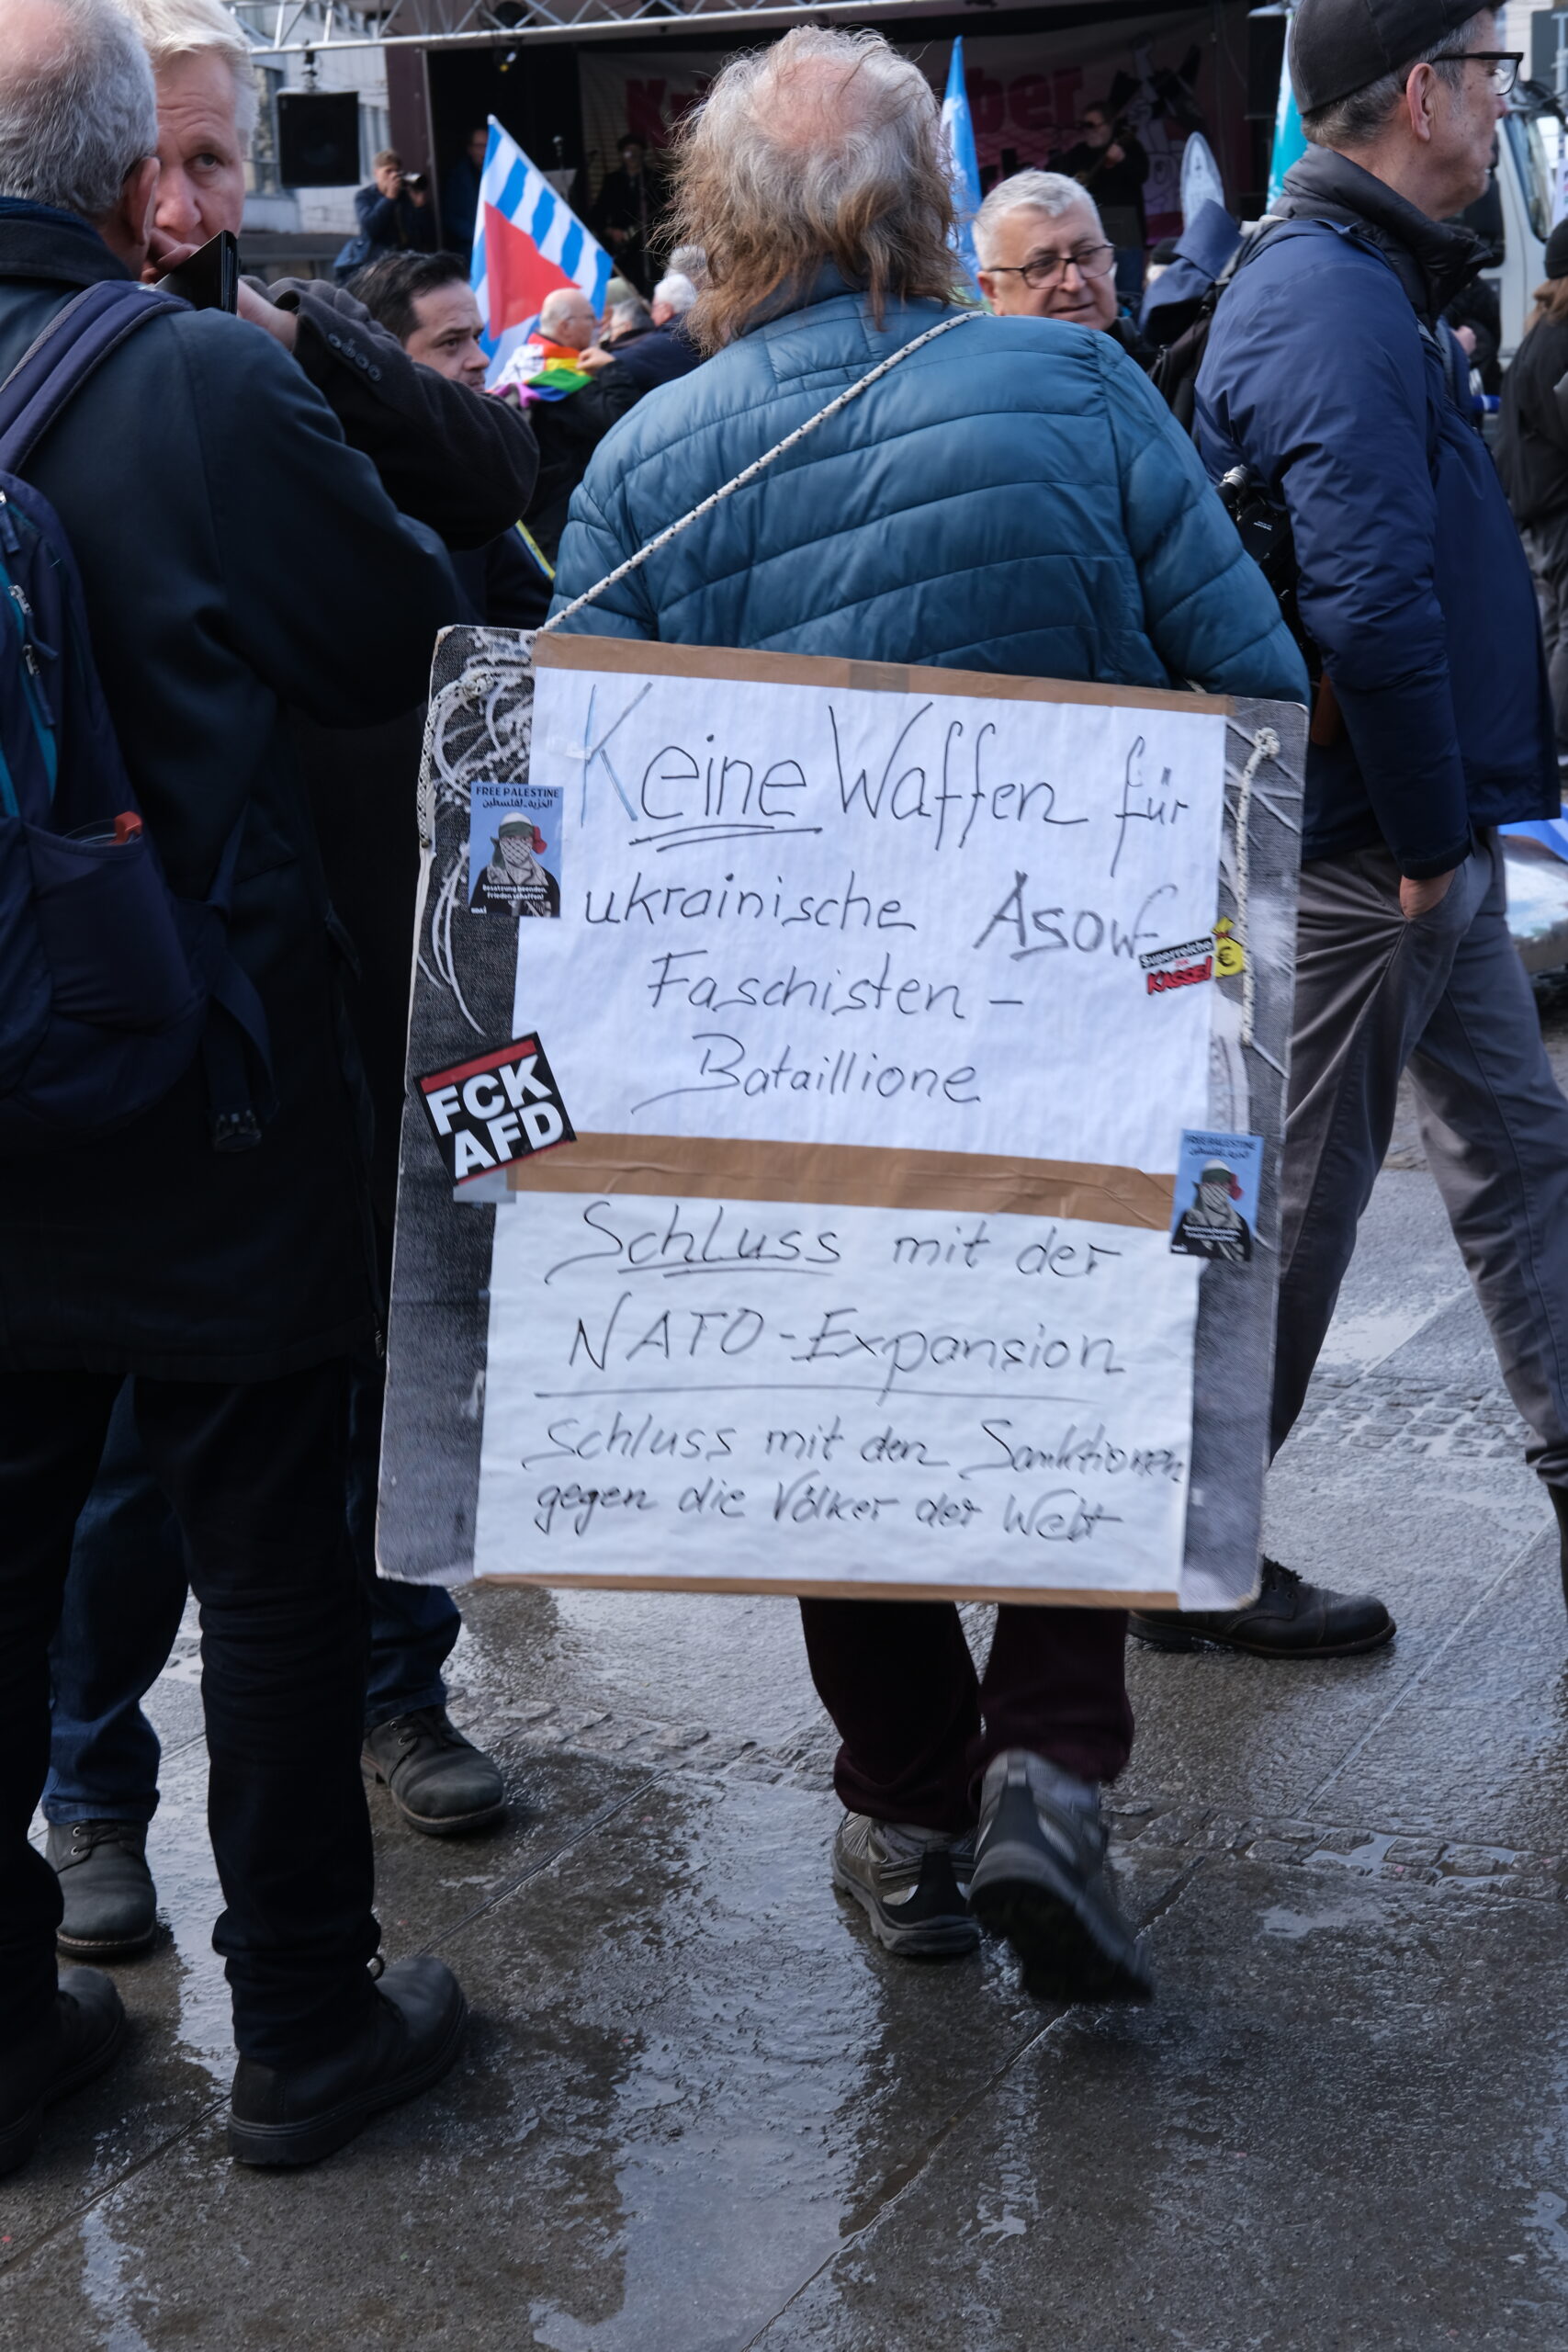 Keine Waffen für
ukrainische Asow-
Faschisten-
Bataillione
Schluss mit der
NATO-Expansion
Schluss mit den Sanktionen
gegen die Völker der Welt
FREE PALESTINE
الحرية_لفلسطين
Besatzung beenden,
Frieden schaffen!
FCK
AFD
Superreiche
zur
KASSE!
€
FREE PALESTINE
الحرية_لفلسطين